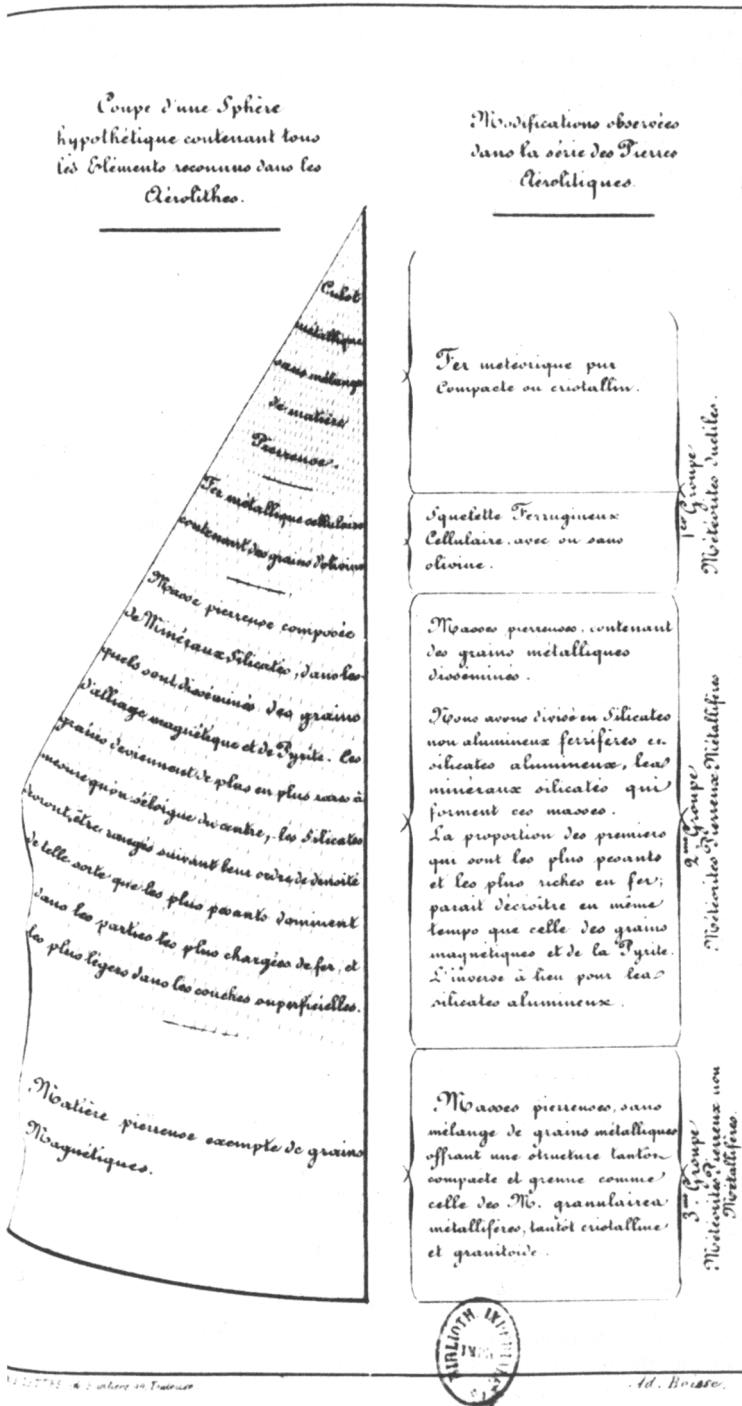 Coupe d'une Sphère
hypothétique contenant tous
les Eléments reconnus dans les
Aérolithes.
Culot
métallique
sans mélange
de matière
Pierreuse.
Fer métallique cellulaire
contenant des grains d'olivine
Masse pierreuse composée
de Minéraux Silicatés, dans les-
quels sont disséminés des grains
d'alliage magnétique et de Pyrite. Ces
grains deviennent de plus en plus rares à
mesure qu'on s'éloigne du centre, les Silicates
devront être rangés suivant leur ordre de densité
de telle sorte que les plus pesants dominent
dans les parties les plus chargées de fer, et
les plus légers dans les couches superficielles.
Matière pierreuse exempte de grains
Magnétiques.
Modifications observées
dans la série des Pierres
Aérolitiques.
Fer météorique pur
Compacte ou cristallin.
Squelette Ferrugineux
Cellulaire avec ou sans
olivine.
1er Groupe
Météorites ductiles.
Masses pierreuses, contenant
des grains métalliques
disséminés.
Nous avons divisé en Silicates
non alumineux ferrifères en
silicates alumineux, les
minéraux silicatés qui
forment ces masses.
La proportion des premiers
qui sont les plus pesants
et les plus riches en fer;
parait décroitre en même
temps que celle des grains
magnétiques et de la Pyrite.
L'inverse à lieu pour les
silicates alumineux.
2me Groupe
Météorites Pierreux Métallifères
Masses pierreuses, sans
mélange de grains métalliques
offrant une structure tantôt
compacte et grenue comme
celle des M. granulaires
métallifères, tantôt cristalline
et granitoïde.
3me Groupe
Météorites Pierreux non
Métallifères.
BIBLIOTH. IMPÉRIALE
Toulouse
Ad. Boisse.